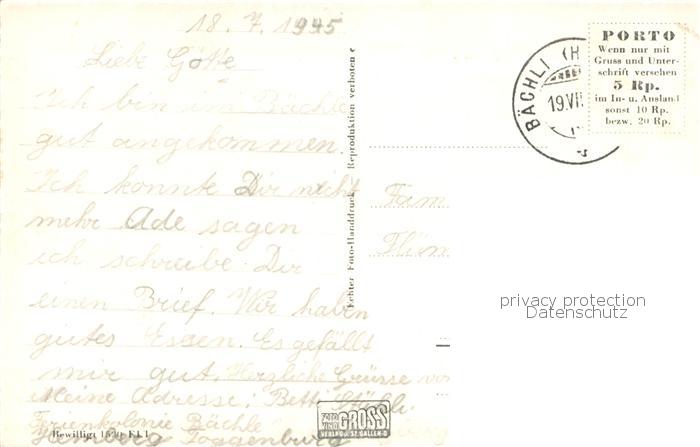 18. 7. 1945
Liebe Götte
Ich bin im Bächle
gut angekommen.
Ich konnte Dir nicht
mehr Ade sagen
ich schreibe Dir
einen Brief. Wir haben
gutes Essen. Es gefällt
mir gut. Herzliche Grüsse von
Meine Adresse: Betti
Ferienkolonie Bächle
Toggenburg
Bewilligt
Echter Foto-Handdruck Reproduktion verboten
FOTO GROSS
VERLAG ST. GALLEN
BÄCHLI (H
19.VII
PORTO
Wenn nur mit
Gruss und Unter-
schrift versehen
5 Rp.
im In- u. Ausland
sonst 10 Rp.
bezw. 20 Rp.
Fam
privacy protection
Datenschutz